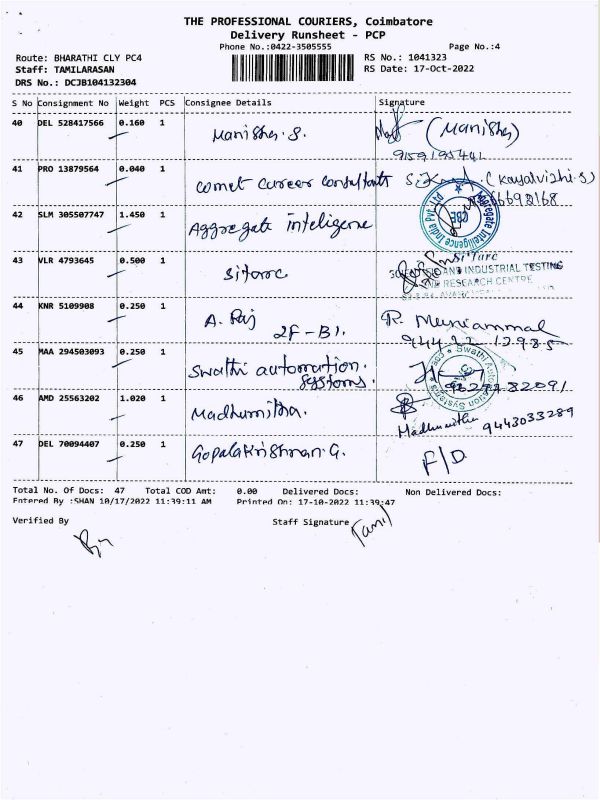 THE PROFESSIONAL COURIERS, Coimbatore
Delivery Runsheet - PCP
Phone No.:0422-3505555 Page No.:4
Route: BHARATHI CLY PC4 RS No.: 1041323
Staff: TAMILARASAN RS Date: 17-Oct-2022
DRS No.: DCJB104132304
S No Consignment No Weight PCS Consignee Details Signature
40 DEL 528417566 0.160 1 Manisha. S. (Manisha)
9159195441
41 PRO 13879564 0.040 1 Comet career consultants (Kayalvizhi.S)
42 SLM 305507747 1.450 1 Aggregate inteligene
Aggregate Intelligence India Pvt. Ltd CBE
43 VLR 4793645 0.500 1 Sitarc Si'Tarc
AND INDUSTRIAL TESTING
RESEARCH CENTRE
44 KNR 5109908 0.250 1 A. Raj R. Muniammal
2F-B1.
45 MAA 294503093 0.250 1 Swathi automation.
systems.
Swathi Automation Systems
46 AMD 25563202 1.020 1 Madhumitha.
Madhumitha 9443033289
47 DEL 70094407 0.250 1 Gopalakrishnan. G. F/D
Total No. Of Docs: 47 Total COD Amt: 0.00 Delivered Docs: Non Delivered Docs:
Entered By :SHAN 10/17/2022 11:39:11 AM Printed On: 17-10-2022 11:39:47
Verified By Staff Signature Tamil